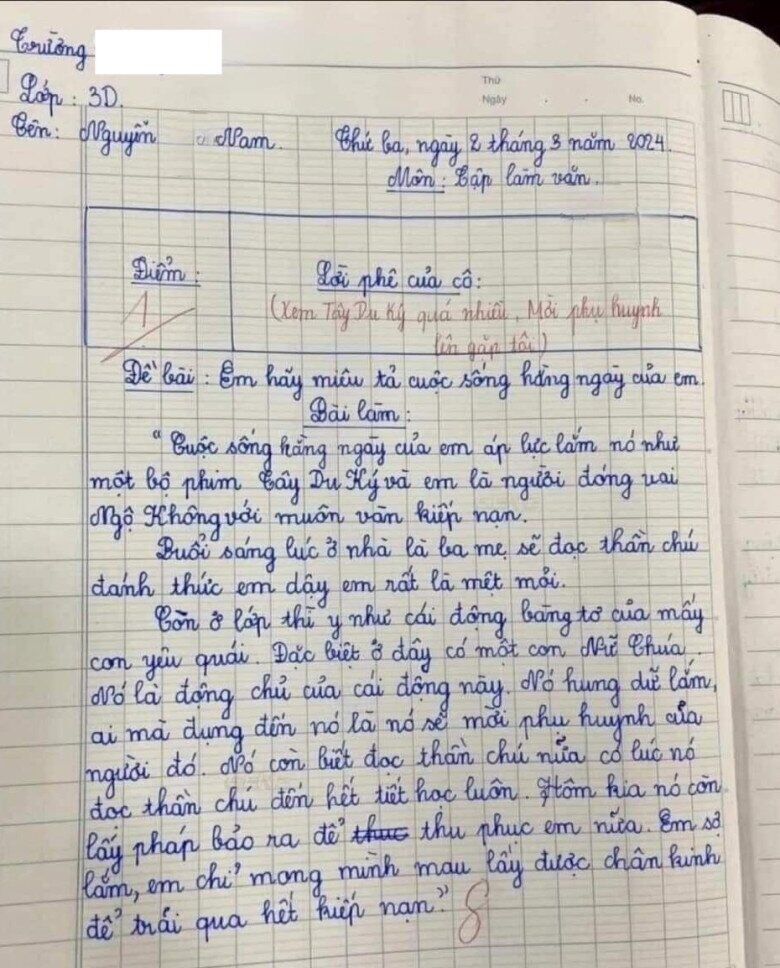 Trường
Lớp : 3D.
Thứ
Ngày . . No.
Tên: Nguyễn Nam. Thứ ba, ngày 2 tháng 3 năm 2024.
Môn: Tập làm văn.
Điểm :
1
Lời phê của cô:
(Xem Tây Du Ký quá nhiều, Mời phụ huynh
lên gặp tôi)
Đề bài : Em hãy miêu tả cuộc sống hằng ngày của em.
Bài làm:
"Cuộc sống hằng ngày của em áp lực lắm nó như
một bộ phim Tây Du Ký và em là người đóng vai
Ngộ Không với muôn vàn kiếp nạn.
Buổi sáng lúc ở nhà là ba mẹ sẽ đọc thần chú
đánh thức em dậy em rất là mệt mỏi.
Còn ở lớp thì y như cái động bàng tơ của mấy
con yêu quái. Đặc biệt ở đây có một con Nữ Chúa.
Nó là động chủ của cái động này. Nó hung dữ lắm,
ai mà đụng đến nó là nó sẽ mời phụ huynh của
người đó. Nó còn biết đọc thần chú nữa có lúc nó
đọc thần chú đến hết tiết học luôn. Hôm kia nó còn
lấy pháp bảo ra để thuc thu phục em nữa. Em sợ
lắm, em chỉ mong mình mau lấy được chân kinh
để trải qua hết kiếp nạn."